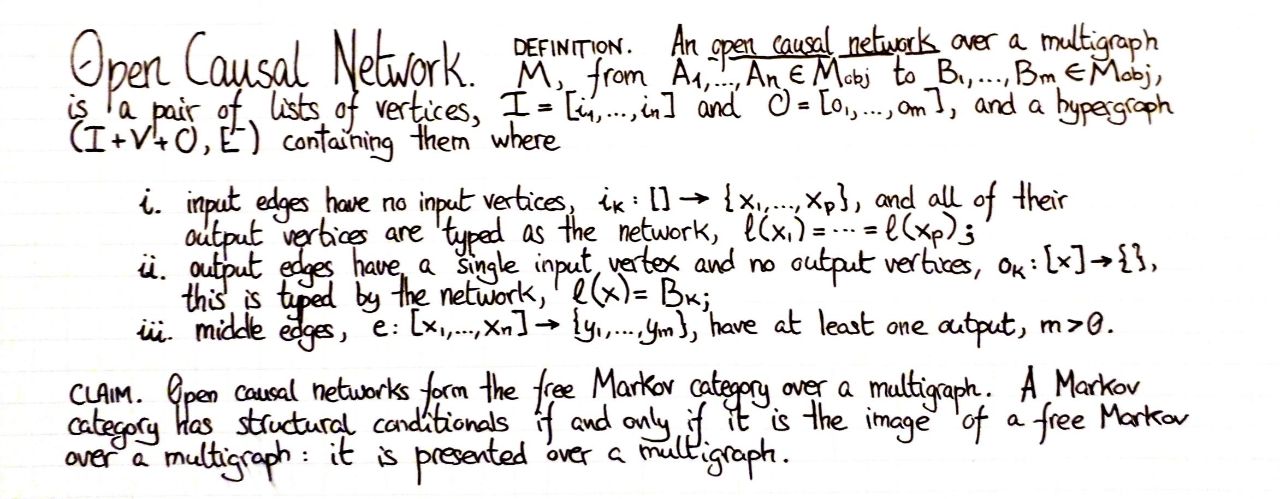 Open Causal Network. DEFINITION. An open causal network over a multigraph
M, from A₁,...,Aₙ ∈ Mobj to B₁,...,Bₘ ∈ Mobj,
is a pair of lists of vertices, I = [i₁,...,iₙ] and O = [o₁,...,oₘ], and a hypergraph
(I+V+O, E) containing them where
i. input edges have no input vertices, iₖ : [] → {x₁,...,xₚ}, and all of their
output vertices are typed as the network, ℓ(x₁) = ··· = ℓ(xₚ);
ii. output edges have a single input vertex and no output vertices, oₖ : [x] → {},
this is typed by the network, ℓ(x) = Bₖ;
iii. middle edges, e : [x₁,...,xₙ] → {y₁,...,yₘ}, have at least one output, m > 0.
CLAIM. Open causal networks form the free Markov category over a multigraph. A Markov
category has structural conditionals if and only if it is the image of a free Markov
over a multigraph : it is presented over a multigraph.